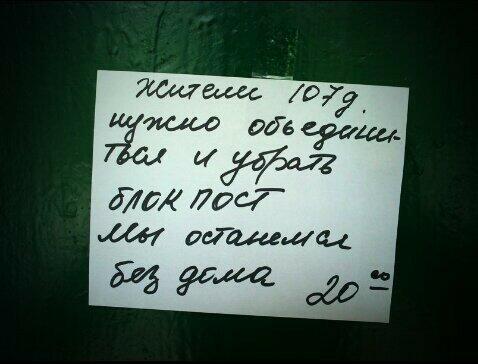 Жители 107д.
нужно объедини-
ться и убрать
блок пост
Мы останемся
без дома 20 00